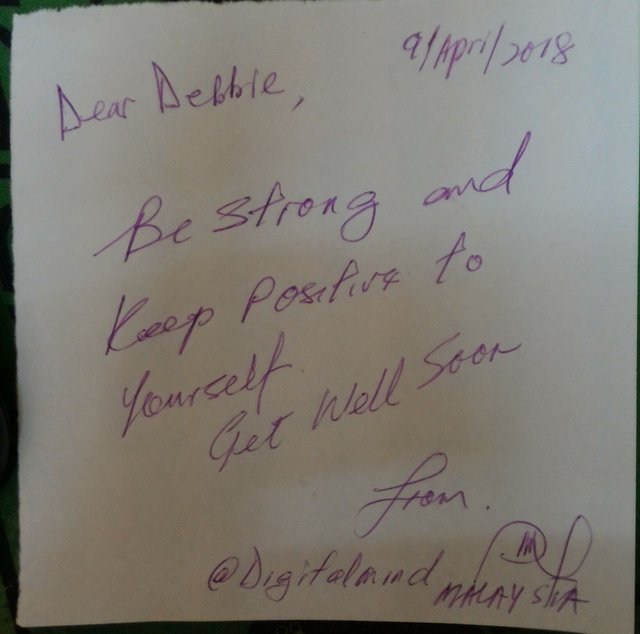 9/April/2018
Dear Debbie,
Be strong and
Keep positive to
yourself.
Get Well Soon
from.
@Digitalmind MALAYSIA